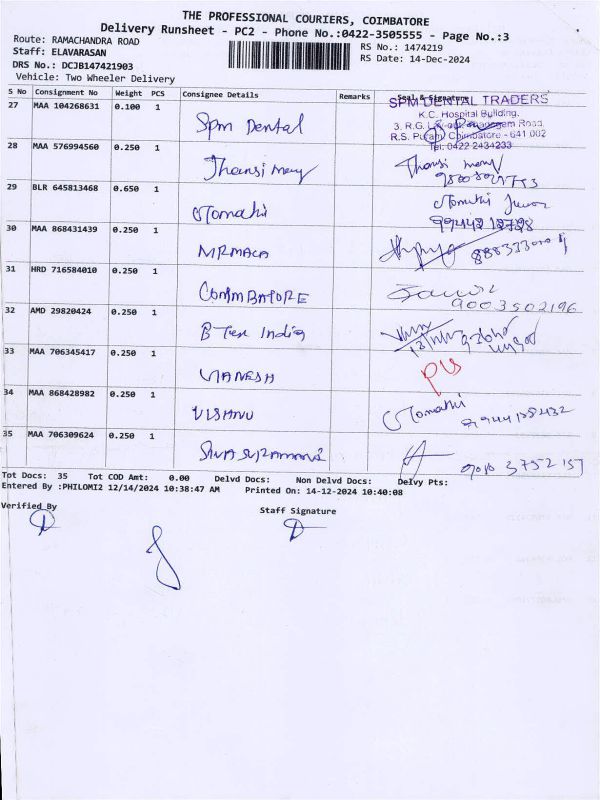 THE PROFESSIONAL COURIERS, COIMBATORE
Delivery Runsheet - PC2 - Phone No.:0422-3505555 - Page No.:3
Route: RAMACHANDRA ROAD
RS No.: 1474219
Staff: ELAVARASAN
RS Date: 14-Dec-2024
DRS No.: DCJB147421903
Vehicle: Two Wheeler Delivery
S No Consignment No Weight PCS Consignee Details Remarks Seal & Signature
SPM DENTAL TRADERS
K.C. Hospital Building,
3, R.G. Road,
R.S. Puram, Coimbatore - 641 002
Tel: 0422 2434233
27 MAA 104268631 0.100 1 Spm Dental
28 MAA 576994560 0.250 1 Jhansi mary Jhansi mary
29 BLR 645813468 0.650 1 Gomathi Gomathi
30 MAA 868431439 0.250 1
31 HRD 716584010 0.250 1 COIMBATORE 9003502196
32 AMD 29820424 0.250 1 B Tex India
33 MAA 706345417 0.250 1 GANESH
34 MAA 868428982 0.250 1 VISHNU Gomathi
35 MAA 706309624 0.250 1
Tot Docs: 35 Tot COD Amt: 0.00 Delvd Docs: Non Delvd Docs: Delvy Pts:
Entered By :PHILOMI2 12/14/2024 10:38:47 AM Printed On: 14-12-2024 10:40:08
Verified By Staff Signature